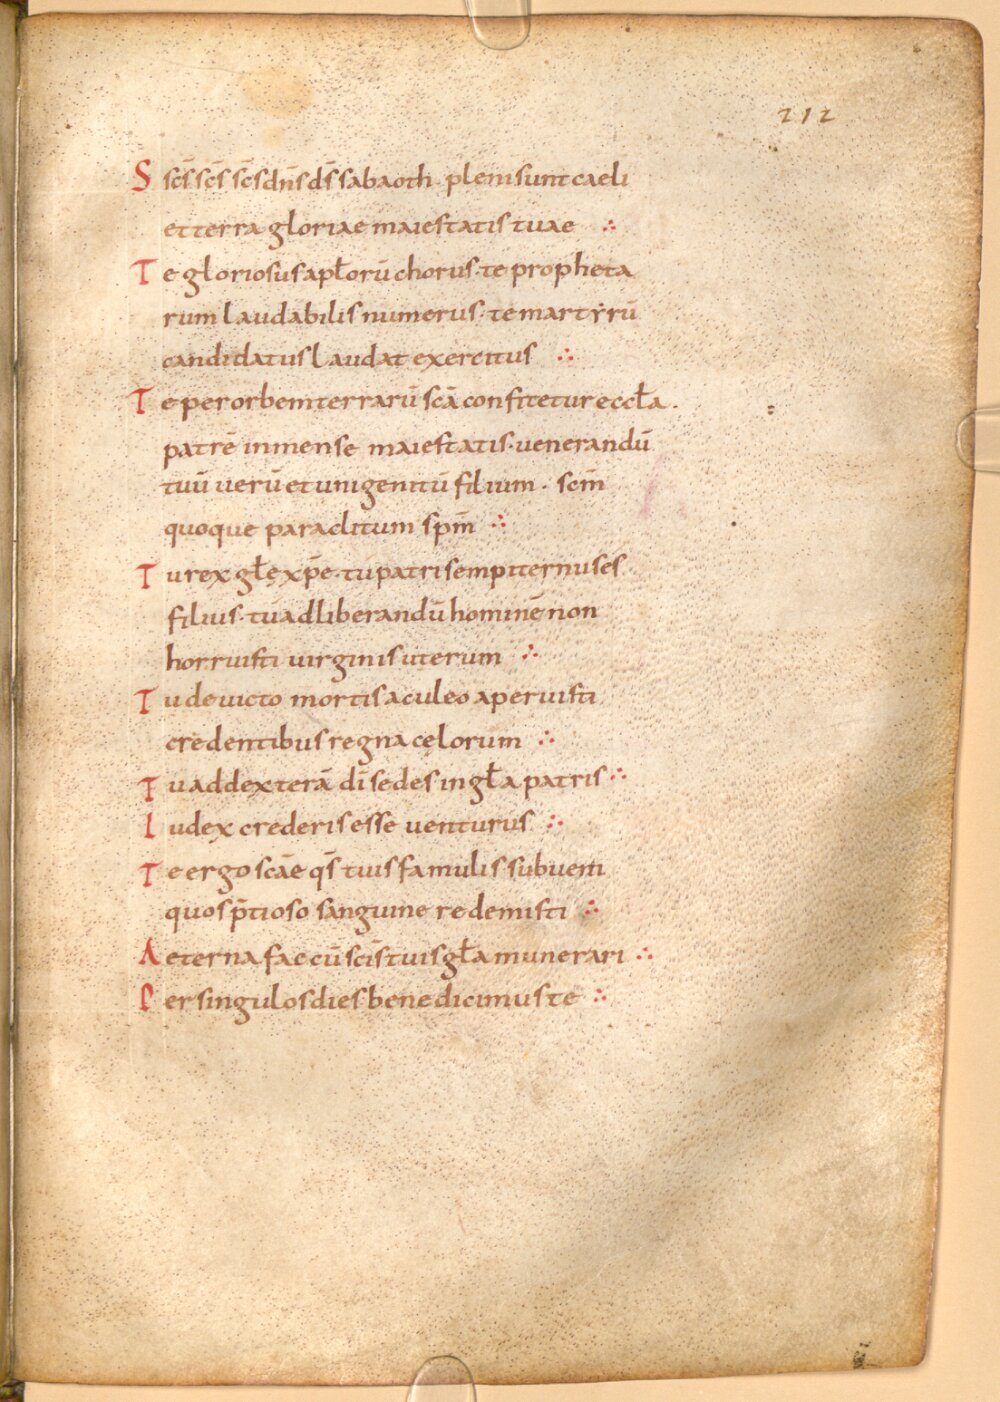 212
S scs̄ scs̄ scs̄ dn̄s ds̄ sabaoth. pleni sunt caeli
et terra gloriae maiestatis tuae ∴
Te gloriosus apłorū chorus· te propheta
rum laudabilis numerus· te martẏrū
candidatus laudat exercitus ∴
Te per orbem terrarū scā confitetur eccła.
patrē inmense maiestatis· uenerandū
tuū uerū et unigenitū filium· scm̄
quoque paraclitum spm̄ ∴
Tu rex głę xp̄e· tu patri sempiternus es
filius· tu ad liberandū hominē non
horruisti uirginis uterum ∴
Tu deuicto mortis aculeo aperuisti
credentibus regna cęlorum ∴
Tu ad dexterā dī sedes in gła patris ∴
Iudex crederis esse uenturus ∴
Te ergo scāe qs̄ tuis famulis subueni
quos p̄tioso sanguine redemisti ∴
Aeterna fac cū scīs tuis gła munerari ∴
Per singulos dies benedicimus te ∴